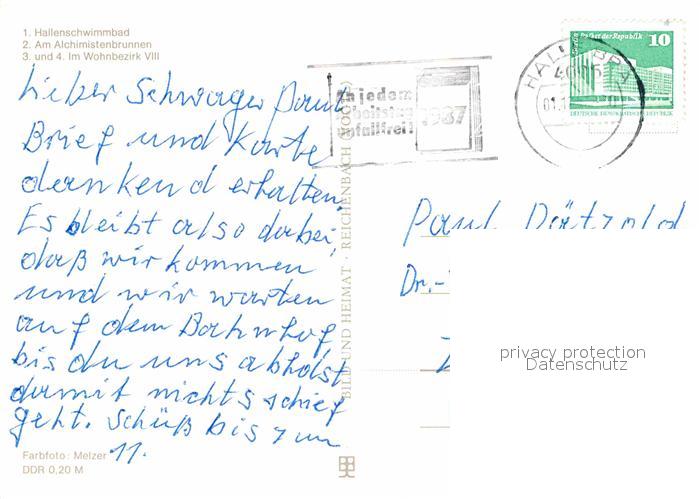 1. Hallenschwimmbad
2. Am Alchimistenbrunnen
3. und 4. Im Wohnbezirk VIII
Lieber Schwager Paul
Brief und Karte
dankend erhalten.
Es bleibt also dabei,
daß wir kommen
und wir warten
auf dem Bahnhof,
bis du uns abholst
damit nichts schief
geht. Schüß bis zum
11.
Farbfoto: Melzer
DDR 0,20 M
BILD UND HEIMAT · REICHENBACH
An jedem
Arbeitstag
unfallfrei!
1987
HALLE
Palast der Republik
10
DEUTSCHE DEMOKRATISCHE REPUBLIK
Paul
Dr.-
privacy protection
Datenschutz